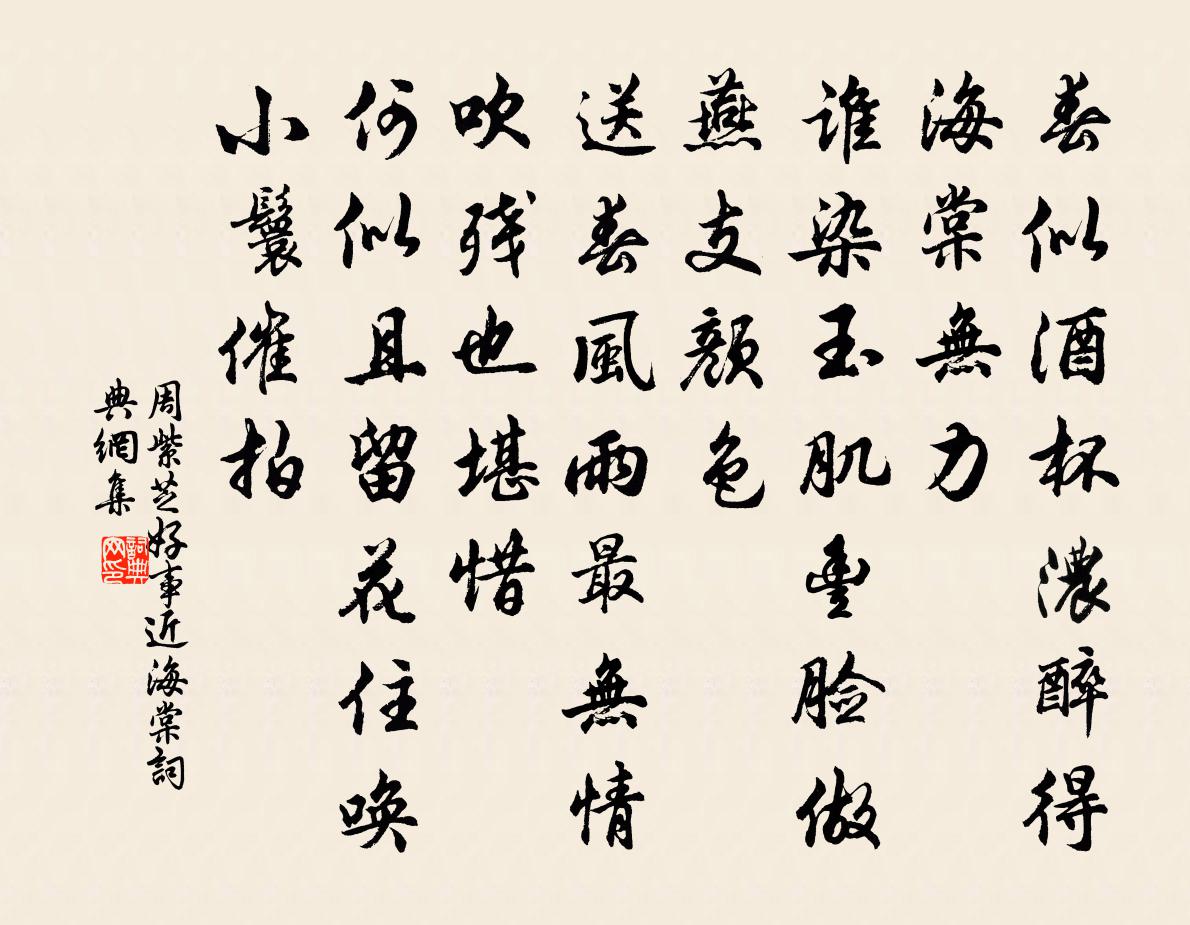 春似酒杯濃醉得
海棠無力
誰染玉肌豊脸做
燕支顔色
送春風雨最無情
吹残也堪惜
何似且留花住唤
小鬟催拍
周紫芝好事近海棠詞
典網集
詞典网印